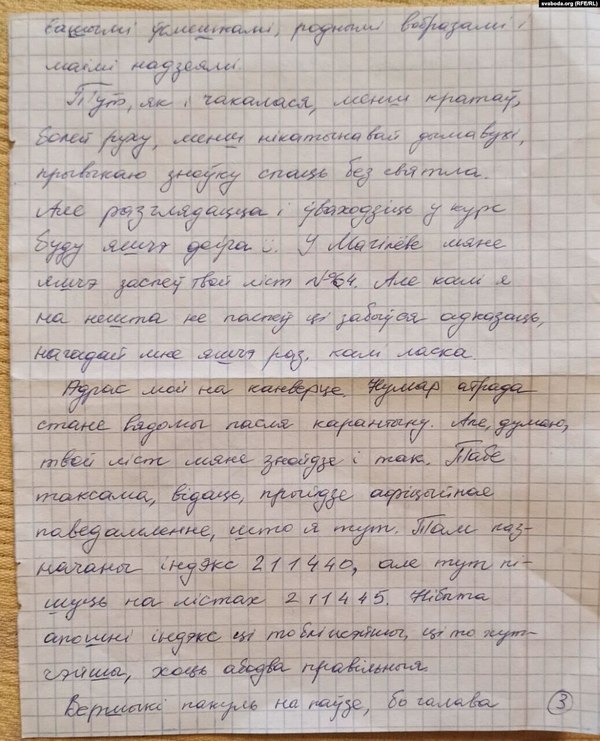 svaboda.org (RFE/RL)
вашымі ўсмешкамі, роднымі вобразамі і
маімі надзеямі.
Тут, як і чакалася, менш кратаў,
болей руху, менш нікатынавай дымавухі,
прывыкаю зноўку спаць без святла.
Але разглядацца і ўваходзіць у курс
буду яшчэ доўга :). У Магілёве мяне
яшчэ заспеў твой ліст №64. Але калі я
на нешта не паспеў ці забыўся адказаць,
нагадай мне яшчэ раз, калі ласка.
Адрас мой на канверце. Нумар атрада
стане вядомы пасля каранты́ну. Але, думаю,
твой ліст мяне знойдзе і так. Табе
таксама, відаць, прыйдзе афіцыйнае
паведамленне, што я тут. Там паз-
начаны індэкс 211440, але тут пі-
шуць на лістах 211445. Нібыта
апошні індэкс ці то бліжэйшы, ці то хут-
чэйша, хоць абодва правільныя.
Вершыкі пакуль на паўзе, бо галава
3